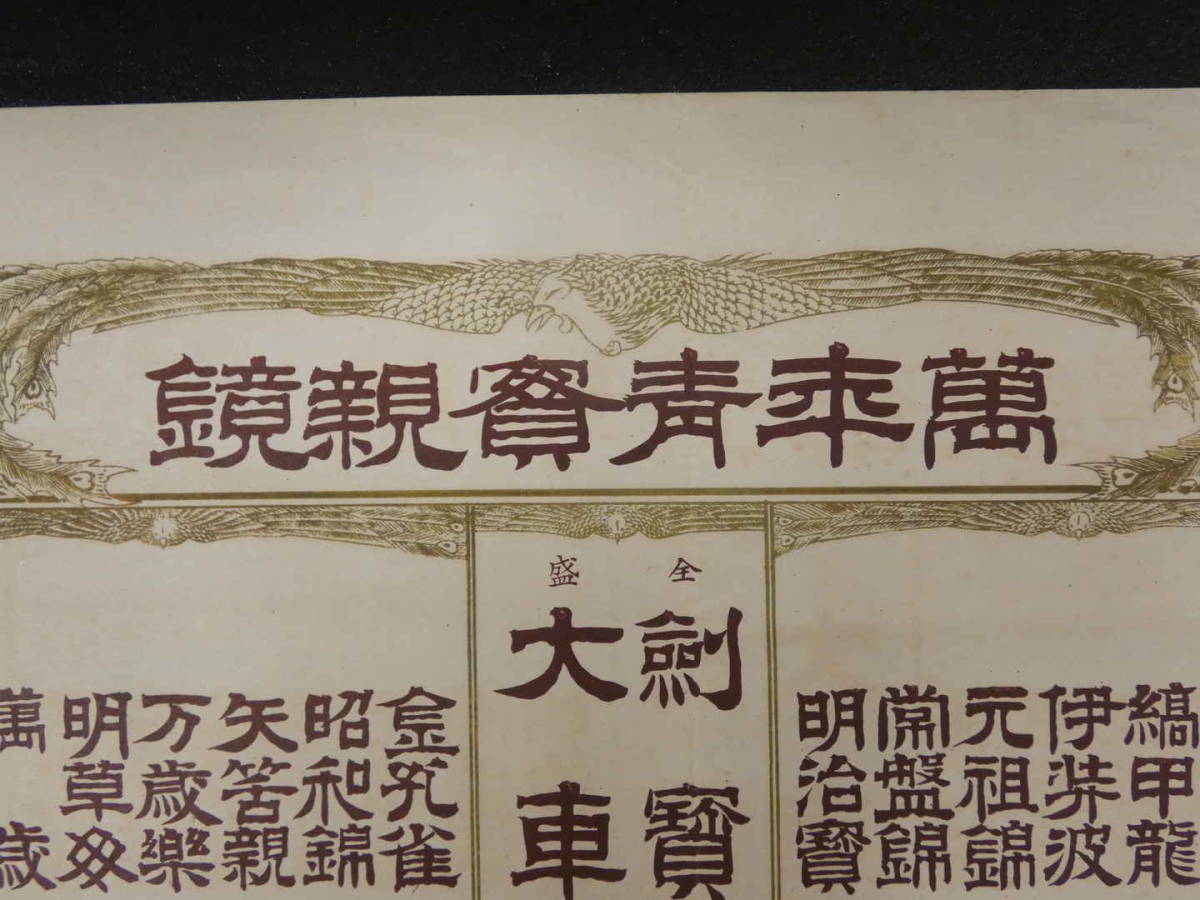 萬年青實親鏡
縞甲龍
伊弉波
元祖錦
常盤錦
明治寶
全盛
劍寶
大車
金孔雀
昭和錦
矢筈親
万歳樂
明草
萬歳